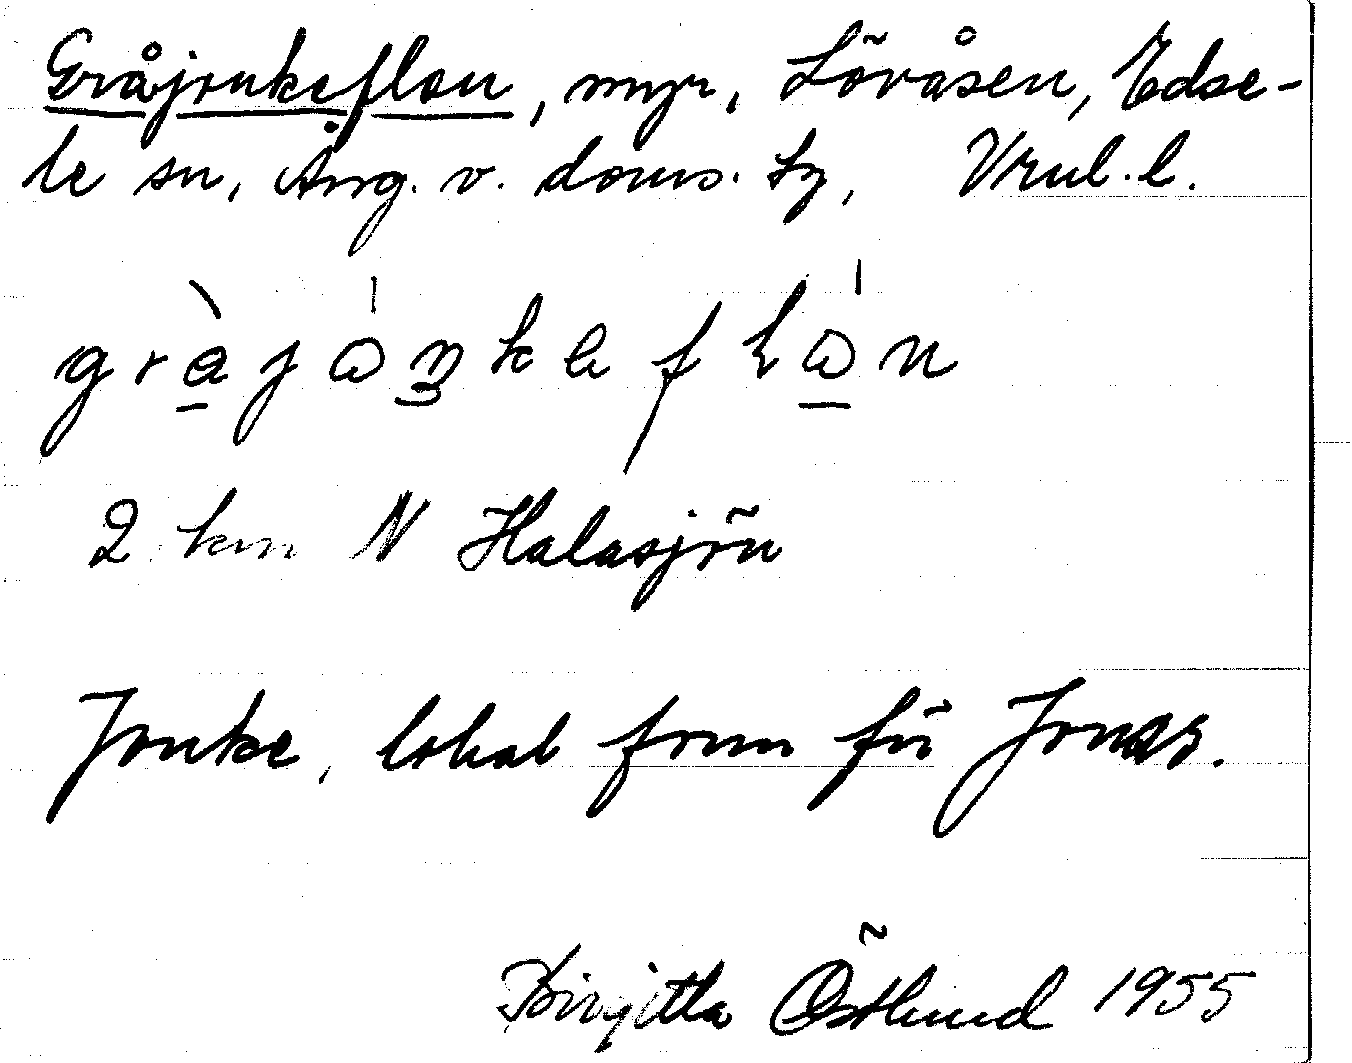 Gråjonkeflon, myr, Lövåsen, Edse-
le sn, Ång. v. doms. tg,
2 km N Halasjön
Jonke, lokal form för Jonas.
Birgitta Östlund 1955